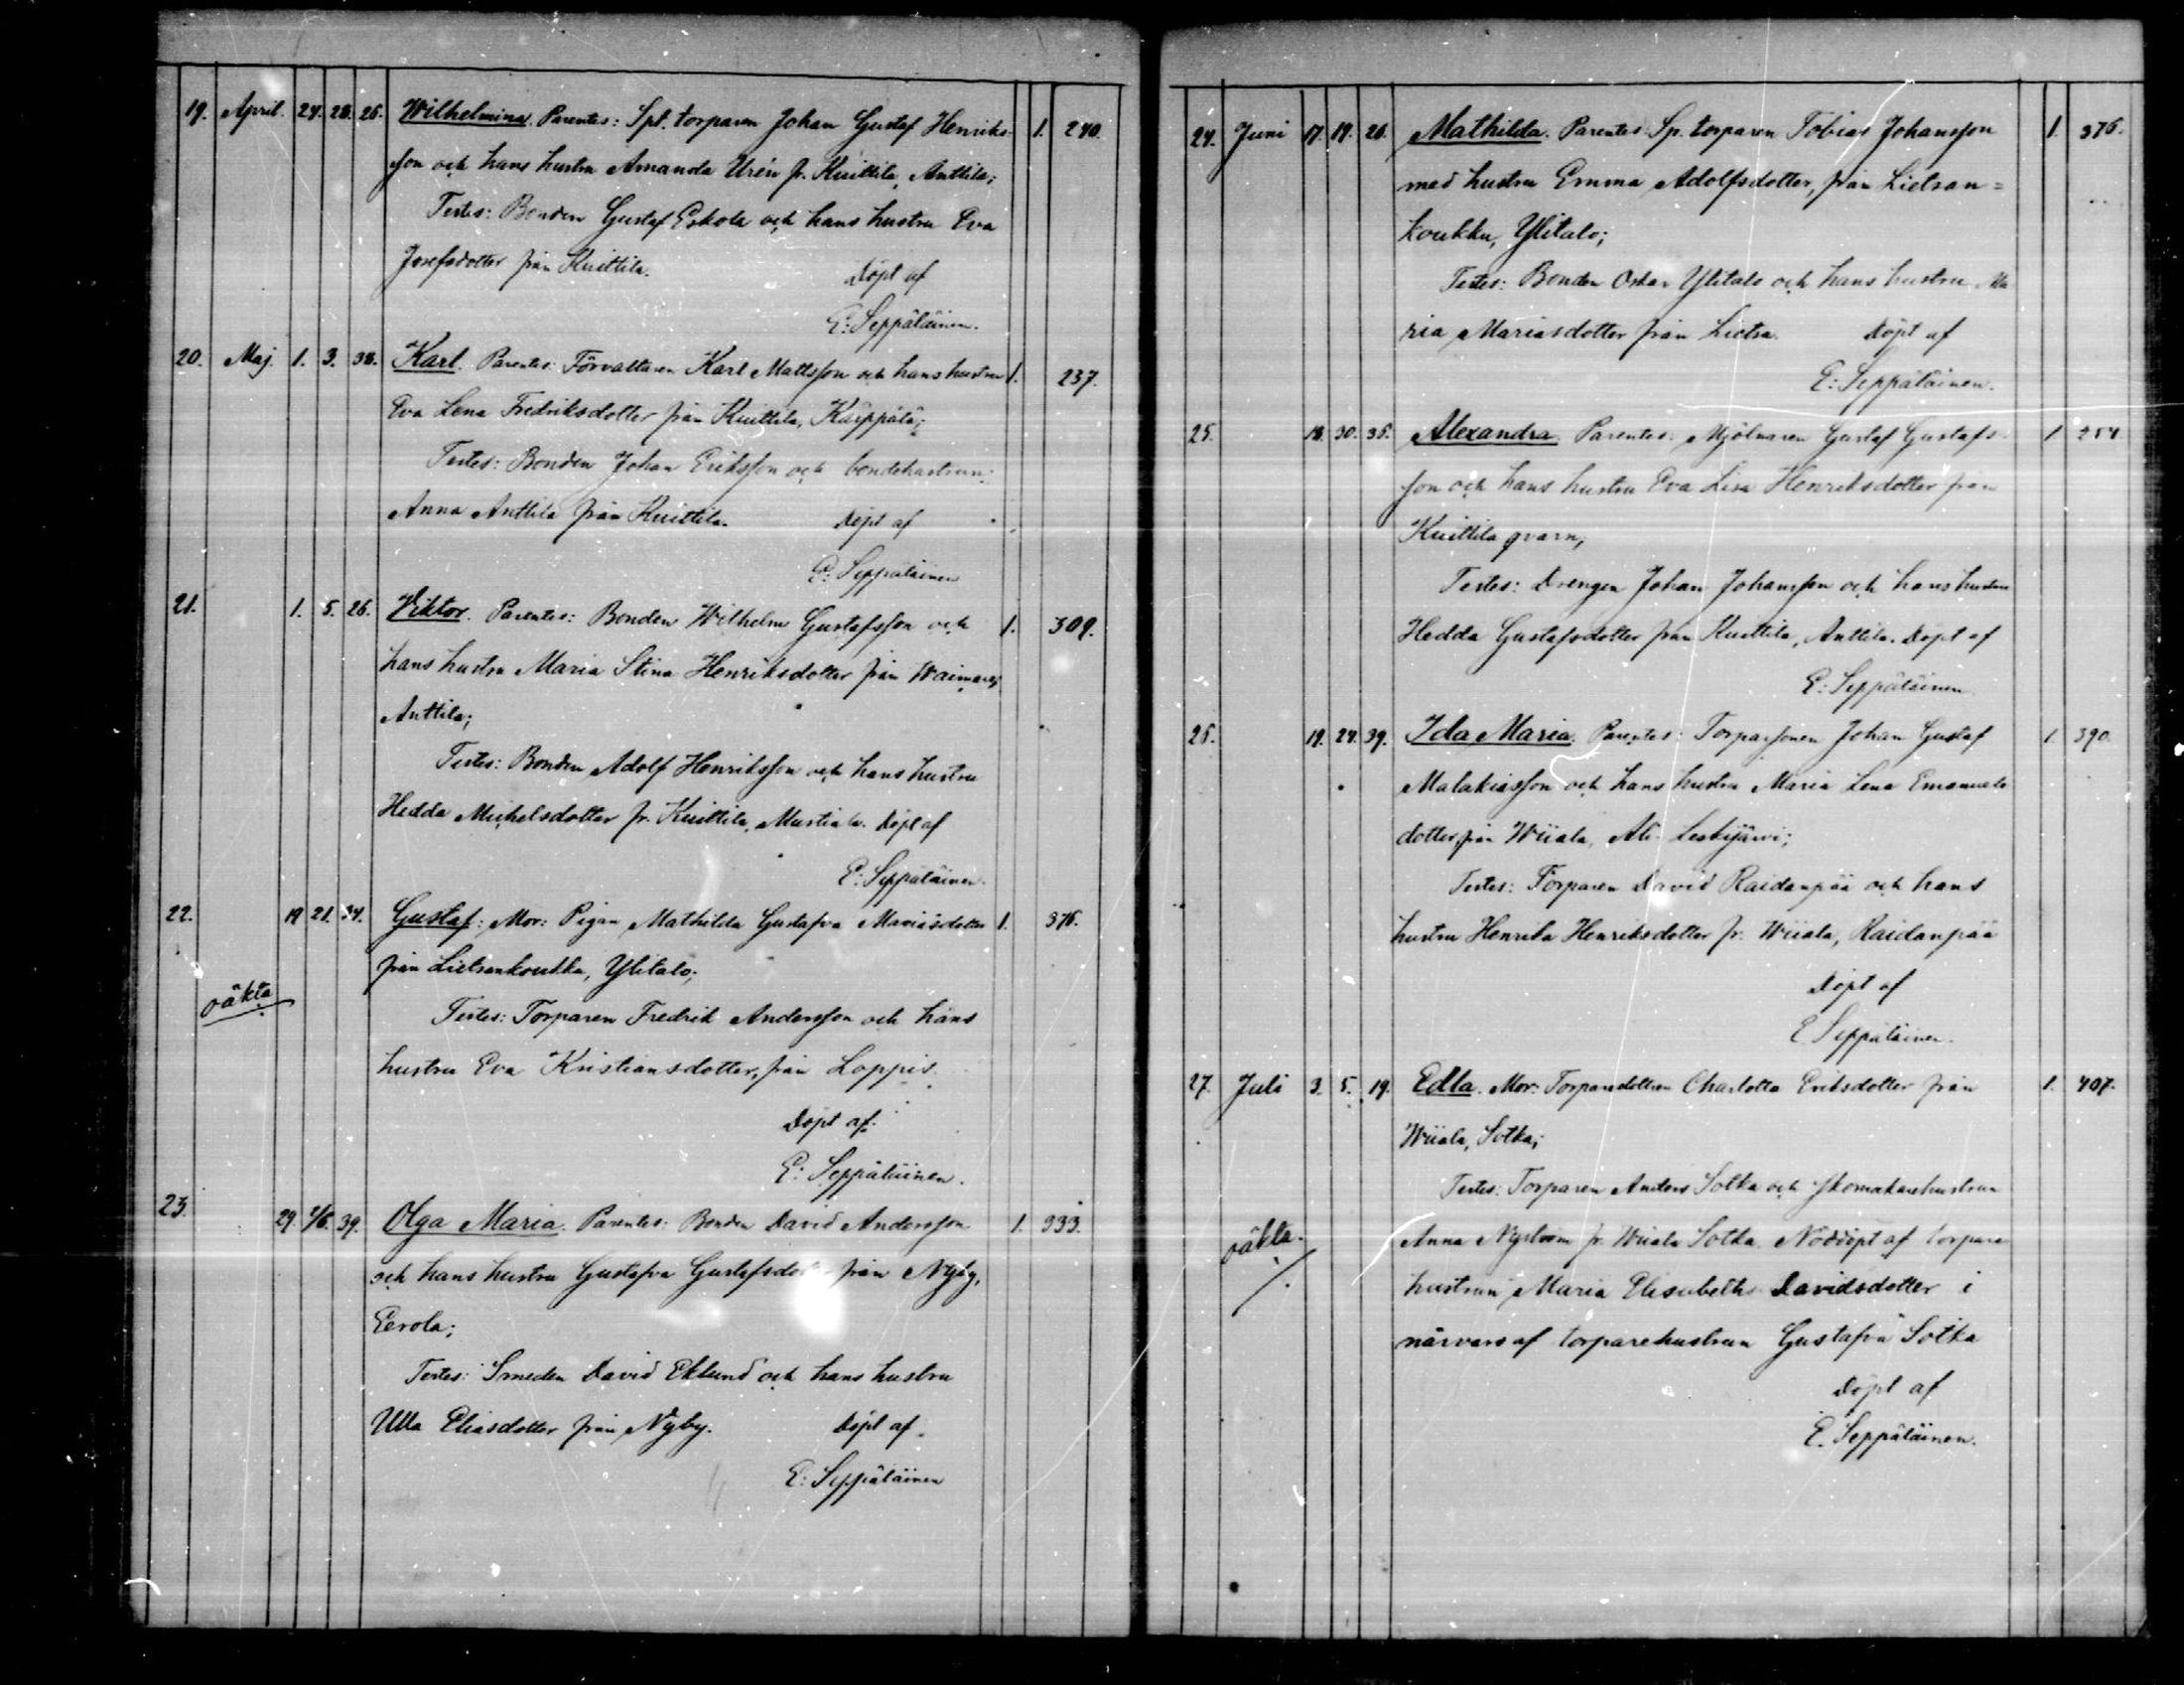 19. April. 24. 28. 26. Wilhelmina. Parentes: Spt. torparen Johan Gustaf Henriks- 1. 240.
son och hans hustru Amanda Urén fr. Kuittila, Anttila;
Testes: Bonden Gustaf Eskola och hans hustru Eva
Josefsdotter från Kuittila. Döpt af
E: Seppäläinen.
20. Maj. 1. 3. 38. Karl. Parentes: Förvaltaren Karl Mattsson och hans hustru 1. 237.
Eva Lena Fredriksdotter från Kuittila, Kärppälä;
Testes: Bonden Johan Eriksson och bondehustrun
Anna Anttila från Kuittila. Döpt af
E: Seppäläinen
21. 1. 5. 26. Viktor. Parentes: Bonden Wilhelm Gustafsson och 1. 309.
hans hustru Maria Stina Henriksdotter från
Anttila;
Testes: Bonden Adolf Henriksson och hans hustru
Hedda Michelsdotter fr. Kuittila, Mustiala. Döpt af
E: Seppäläinen.
22. 19 21. 34. Gustaf: Mor: Pigan Mathilda Gustafva Mariasdotter 1. 376.
från Lietsankoukku, Ylitalo;
oäkta
Testes: Torparen Fredrik Andersson och hans
hustru Eva Kristiansdotter, från Loppis.
Döpt af:
E: Seppäläinen.
23. 29. 2/6. 39. Olga Maria. Parentes: Bonden David Andersson 1. 333.
och hans hustru Gustafva från Nyby,
Eerola;
Testes: Smeden David Eklund och hans hustru
Ulla Eliasdotter från Nyby. Döpt af
E: Seppäläinen
24. Juni 17. 19. 26. Mathilda. Parentes: Sp. torparen Tobias Johansson 1. 376.
med hustru Emma Adolfsdotter, från Lietsan=
koukku, Ylitalo;
Testes: Bonden Oskar Ylitalo och hans hustru Ma
ria Mariasdotter från Lietsa. Döpt af
E: Seppäläinen.
25. 18. 30. 36. Alexandra. Parentes: Mjölnaren Gustaf Gustafs- 1 254
son och hans hustru Eva Lisa Henriksdotter från
Kuittila qvarn,
Testes: Drengen Johan Johansson och hans hustru
Hedda Gustafsdotter från Kuittila, Anttila. Döpt af
E: Seppäläinen
26. 19. 24. 39. Ida Maria. Parentes: Torparsonen Johan Gustaf 1. 390.
Malakiasson och hans hustru Maria Lena Emanuels
dotter från Wiiala, Ali-Leskijärvi;
Testes: Torparen David Raidanpää och hans
hustru Henrika Henriksdotter fr. Wiiala, Raidanpää
Döpt af
E Seppäläinen.
27. Juli 3. 5. 19. Edla. Mor: Torparedottren Charlotta Eriksdotter från 1. 407.
Wiiala, Sotka;
Testes: Torparen Anders Sotka och skomakarehustrun
oäkta. Anna Nyström fr. Wiiala Sotka. Nöddöpt af torpare
hustrun Maria Elisabeth Davidsdotter i
närvaro af torparehustrun Gustafva Sotka
Döpt af
E. Seppäläinen.